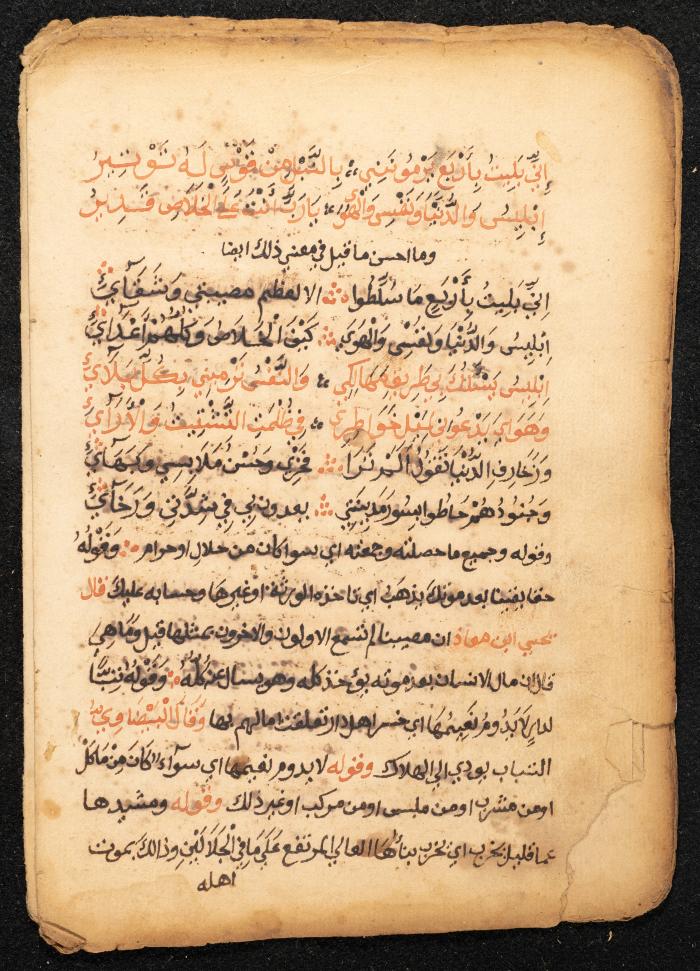 إني بليت بأربع يرمونني بالنبل من قوس له توتير
إبليس والدنيا ونفسي والهوى يا رب أنت على الخلاص قدير
وما احسن ما قيل في معنى ذلك ايضا
إني بليت بأربع ما سلطوا الا لعظم مصيبتي وشقآءي
إبليس والدنيا ونفسي والهوى كيف الخلاص وكلهم أعدآءي
إبليس يسلك بي طريق مهالكي والنفس ترميني بكل بلآءي
وهواي يدعوني لميل خواطري في ظلمت التشتيت والأرآءي
وزخارف الدنيا تقول ألم ترا فخري وحسن ملابسي وبهآءي
وجنودهم حاطوا بسور مدينتي يعدونني في شدتي ورخآءي
وقوله وجميع ما حصلته وجمعته اي سوا كان من حلال او حرام وقوله
حقا يقينا بعد موتك يذهب اي ياخذه الورثة او غيرها وحسابه عليك قال
يحيى ابن معاذ ان مصيبتا لم تسمع الاولون والاخرون بمثلها قيل وما هي
قال ان مال الانسان بعد موته يؤخذ كله وهو يسال عن كله وقوله تبا
لدار لا يدوم نعيمها اي خسر اهل دار تعلقت امالهم بها وقال البيضاوي
التباب يودي الى الهلاك وقوله لا يدوم نعيمها اي سوآء كان من ماكل
او من مشرب او من ملبس او من مركب او غير ذلك وقوله ومشيدها
عما قليل يخرب اي يخرب بنآءها العالي المرتفع على ما في الجلالين وذالك بموت
اهله